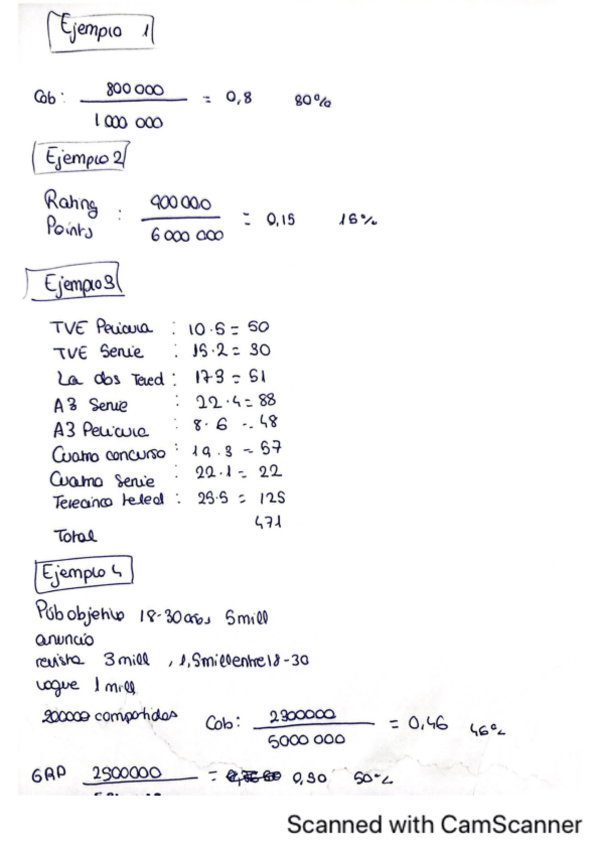 Ejemplo 1
Cob: 800 000 / 1 000 000 = 0,8 80%
Ejemplo 2
Rating Points : 900 000 / 6 000 000 = 0,15 15%
Ejemplo 3
TVE Pelicula : 10·5 = 50
TVE Serie : 15·2 = 30
La dos Teled : 17·3 = 51
A3 Serie : 22·4 = 88
A3 Pelicula : 8·6 = 48
Cuatro concurso : 19·3 = 57
Cuatro Serie : 22·1 = 22
Telecinco teled : 25·5 = 125
Total 471
Ejemplo 4
Púb objetivo 18-30 años 5 mill
anuncio
revista 3 mill , 1,5 mill entre 18-30
vogue 1 mill
200000 compartidos Cob: 2300000 / 5000 000 = 0,46 46%
GRP 2500000 = 0,50 50%
Scanned with CamScanner